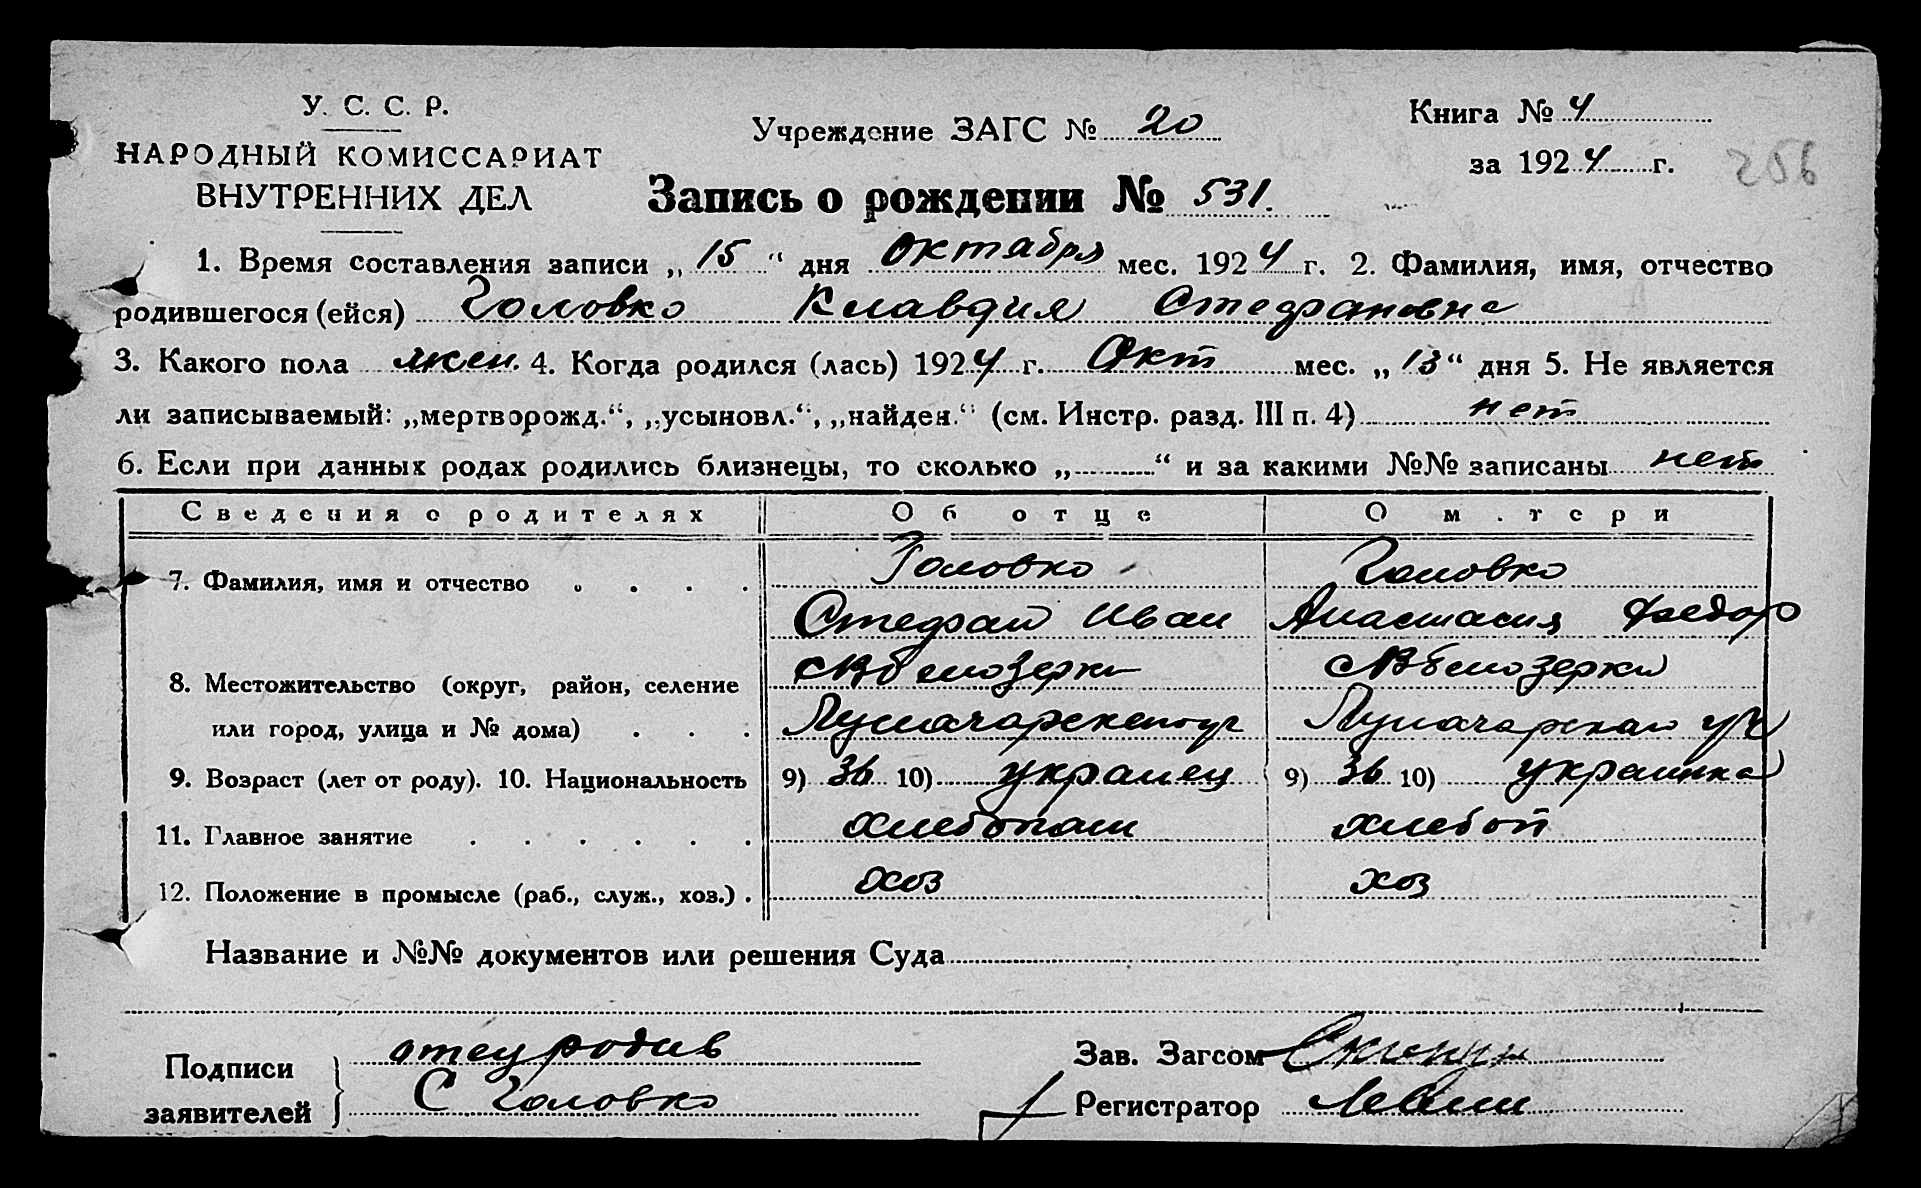 У. С. С. Р.
НАРОДНЫЙ КОМИССАРИАТ
ВНУТРЕННИХ ДЕЛ
Учреждение ЗАГС № 20
Книга № 4
за 1924 г.
256
Запись о рождении № 531.
1. Время составления записи „15“ дня Октября мес. 1924 г. 2. Фамилия, имя, отчество
родившегося (ейся) Головко Клавдия Стефановна
3. Какого пола жен. 4. Когда родился (лась) 1924 г. Окт мес. „13“ дня 5. Не является
ли записываемый: „мертворожд.“, „усыновл.“, „найден.“ (см. Инстр. разд. III п. 4) нет
6. Если при данных родах родились близнецы, то сколько „ “ и за какими №№ записаны нет
Сведения о родителях Об отце О матери
7. Фамилия, имя и отчество . . . . Головко Головко
Стефан Иван Анастасия Федор
8. Местожительство (округ, район, селение Белозерки Белозерки
или город, улица и № дома) . . .
9. Возраст (лет от роду). 10. Национальность 9) 36 10) украинец 9) 36 10) украинка
11. Главное занятие . . . . . . хлебопаш хлебоп
12. Положение в промысле (раб., служ., хоз.) . хоз хоз
Название и №№ документов или решения Суда
Подписи заявителей } отец родив
С Головко
Зав. Загсом
Регистратор